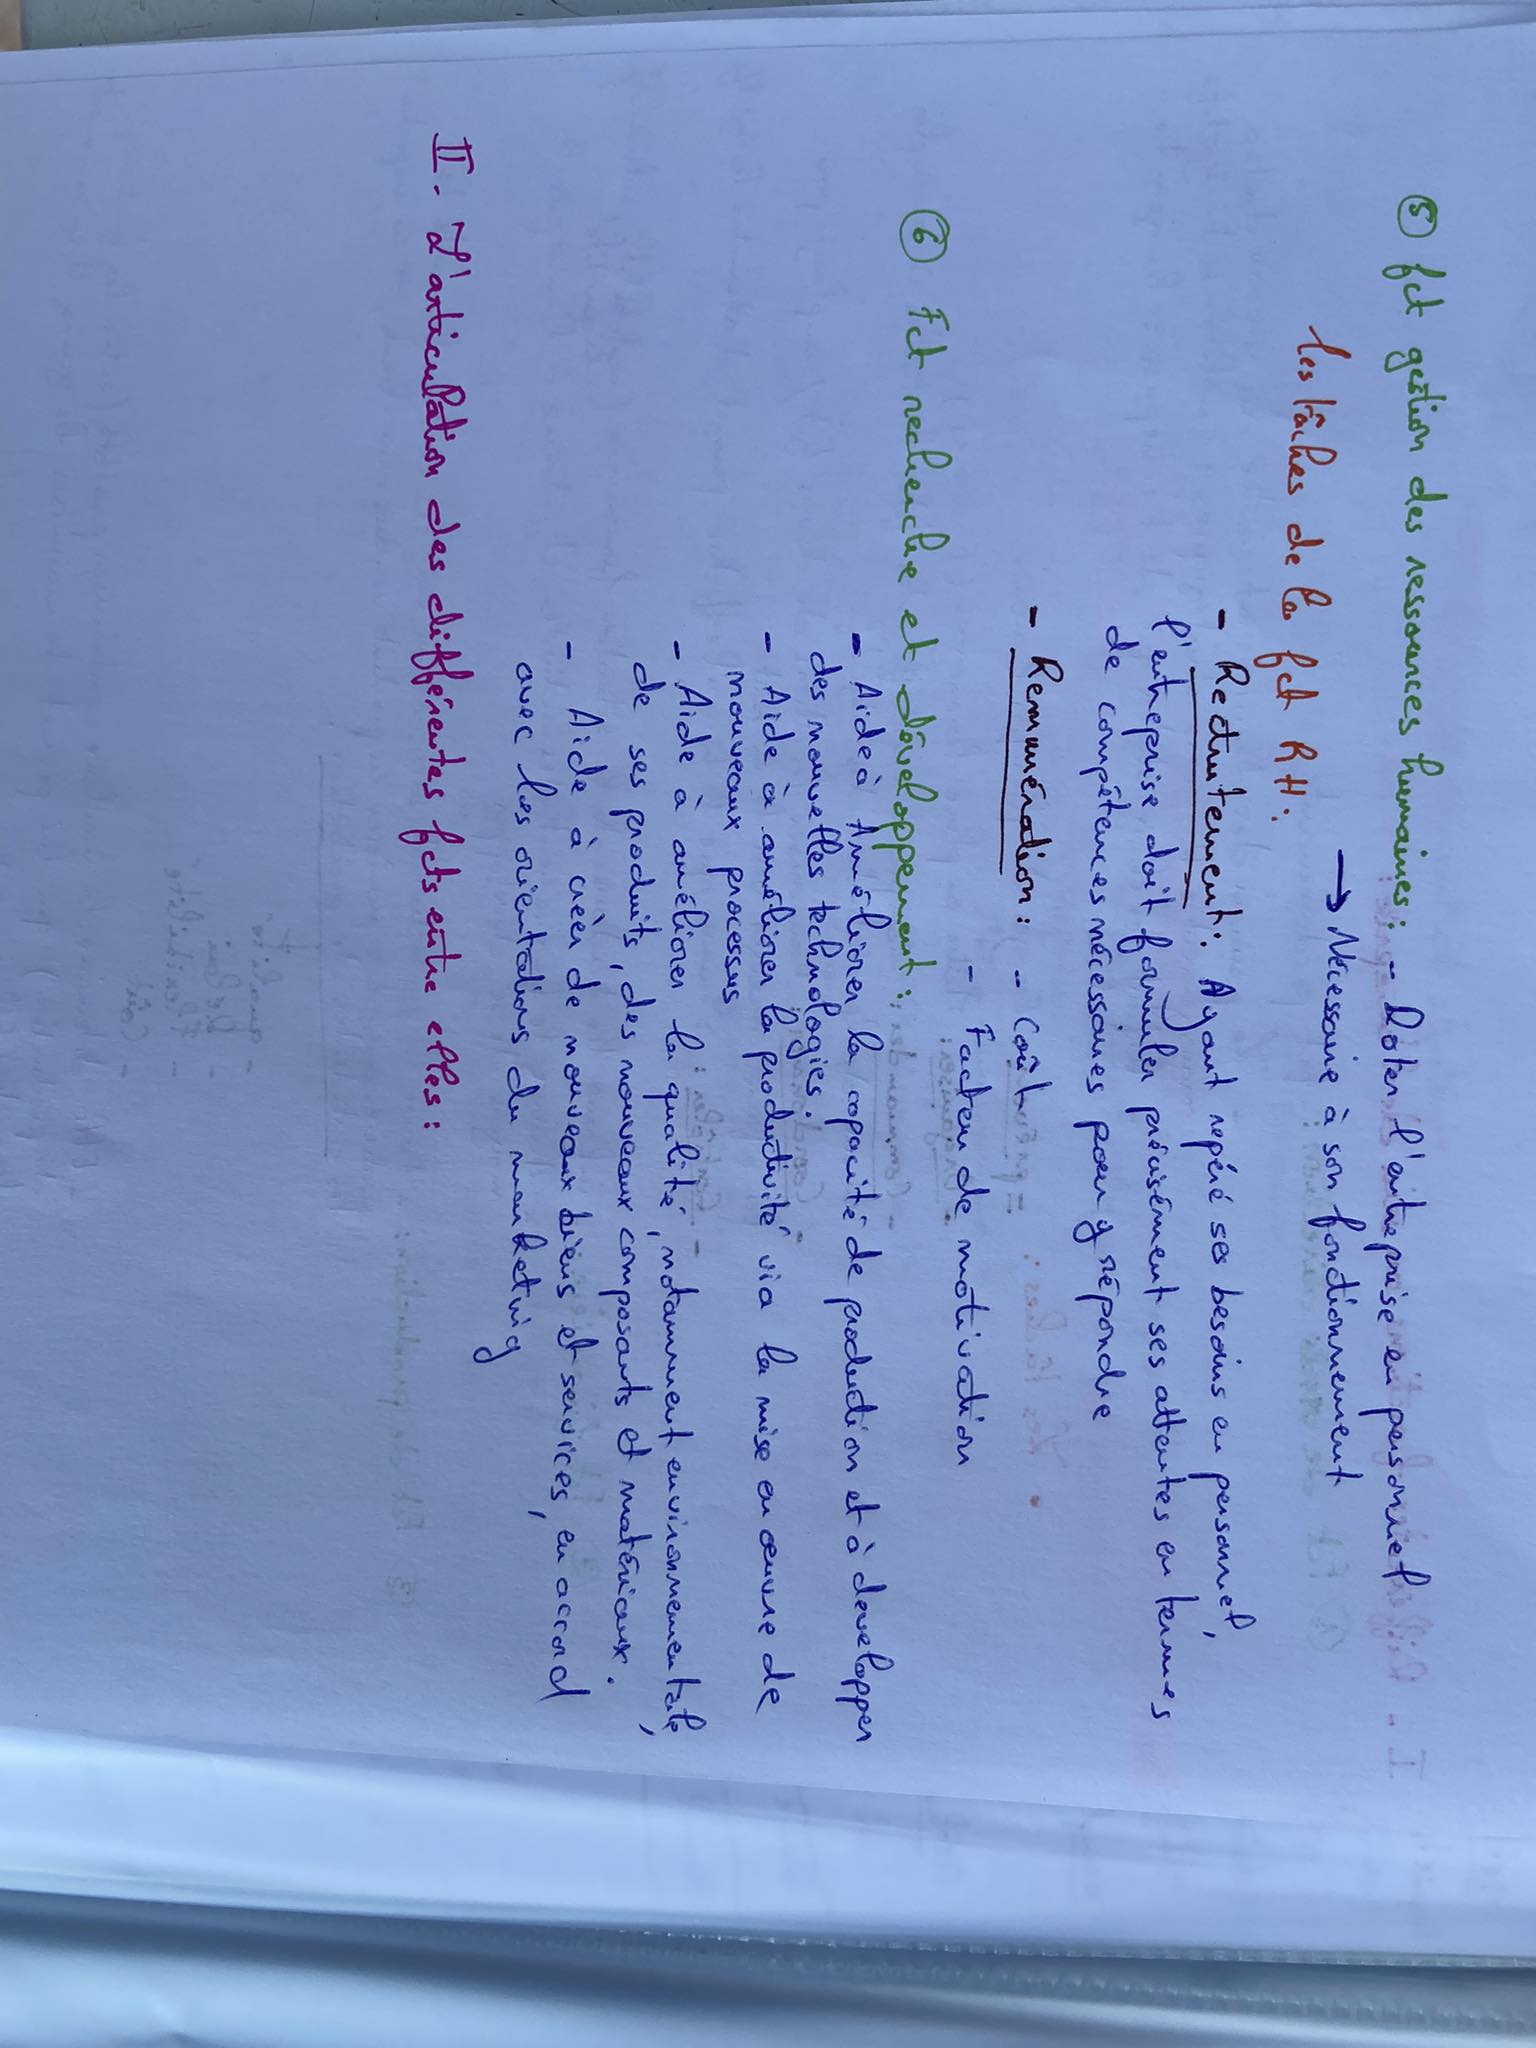 ⑤ fct gestion des ressources humaines : - Doter l'entreprise en personnel
→ Nécessaire à son fonctionnement
les tâches de la fct RH :
- Recrutement : Ayant repéré ses besoins en personnel,
l'entreprise doit formuler précisément ses attentes en termes
de compétences nécessaires pour y répondre
- Remunération : - Coût
- Facteur de motivation
⑥ Fct recherche et développement :
- Aide à Améliorer la capacité de production et à developper
des nouvelles technologies.
- Aide à améliorer la productivité via la mise en œuvre de
nouveaux processus
- Aide à améliorer la qualité, notamment environnementale,
de ses produits, des nouveaux composants et matériaux.
- Aide à créer de nouveaux biens et services, en accord
avec les orientations du marketing
II. L'articulation des différentes fcts entre elles :